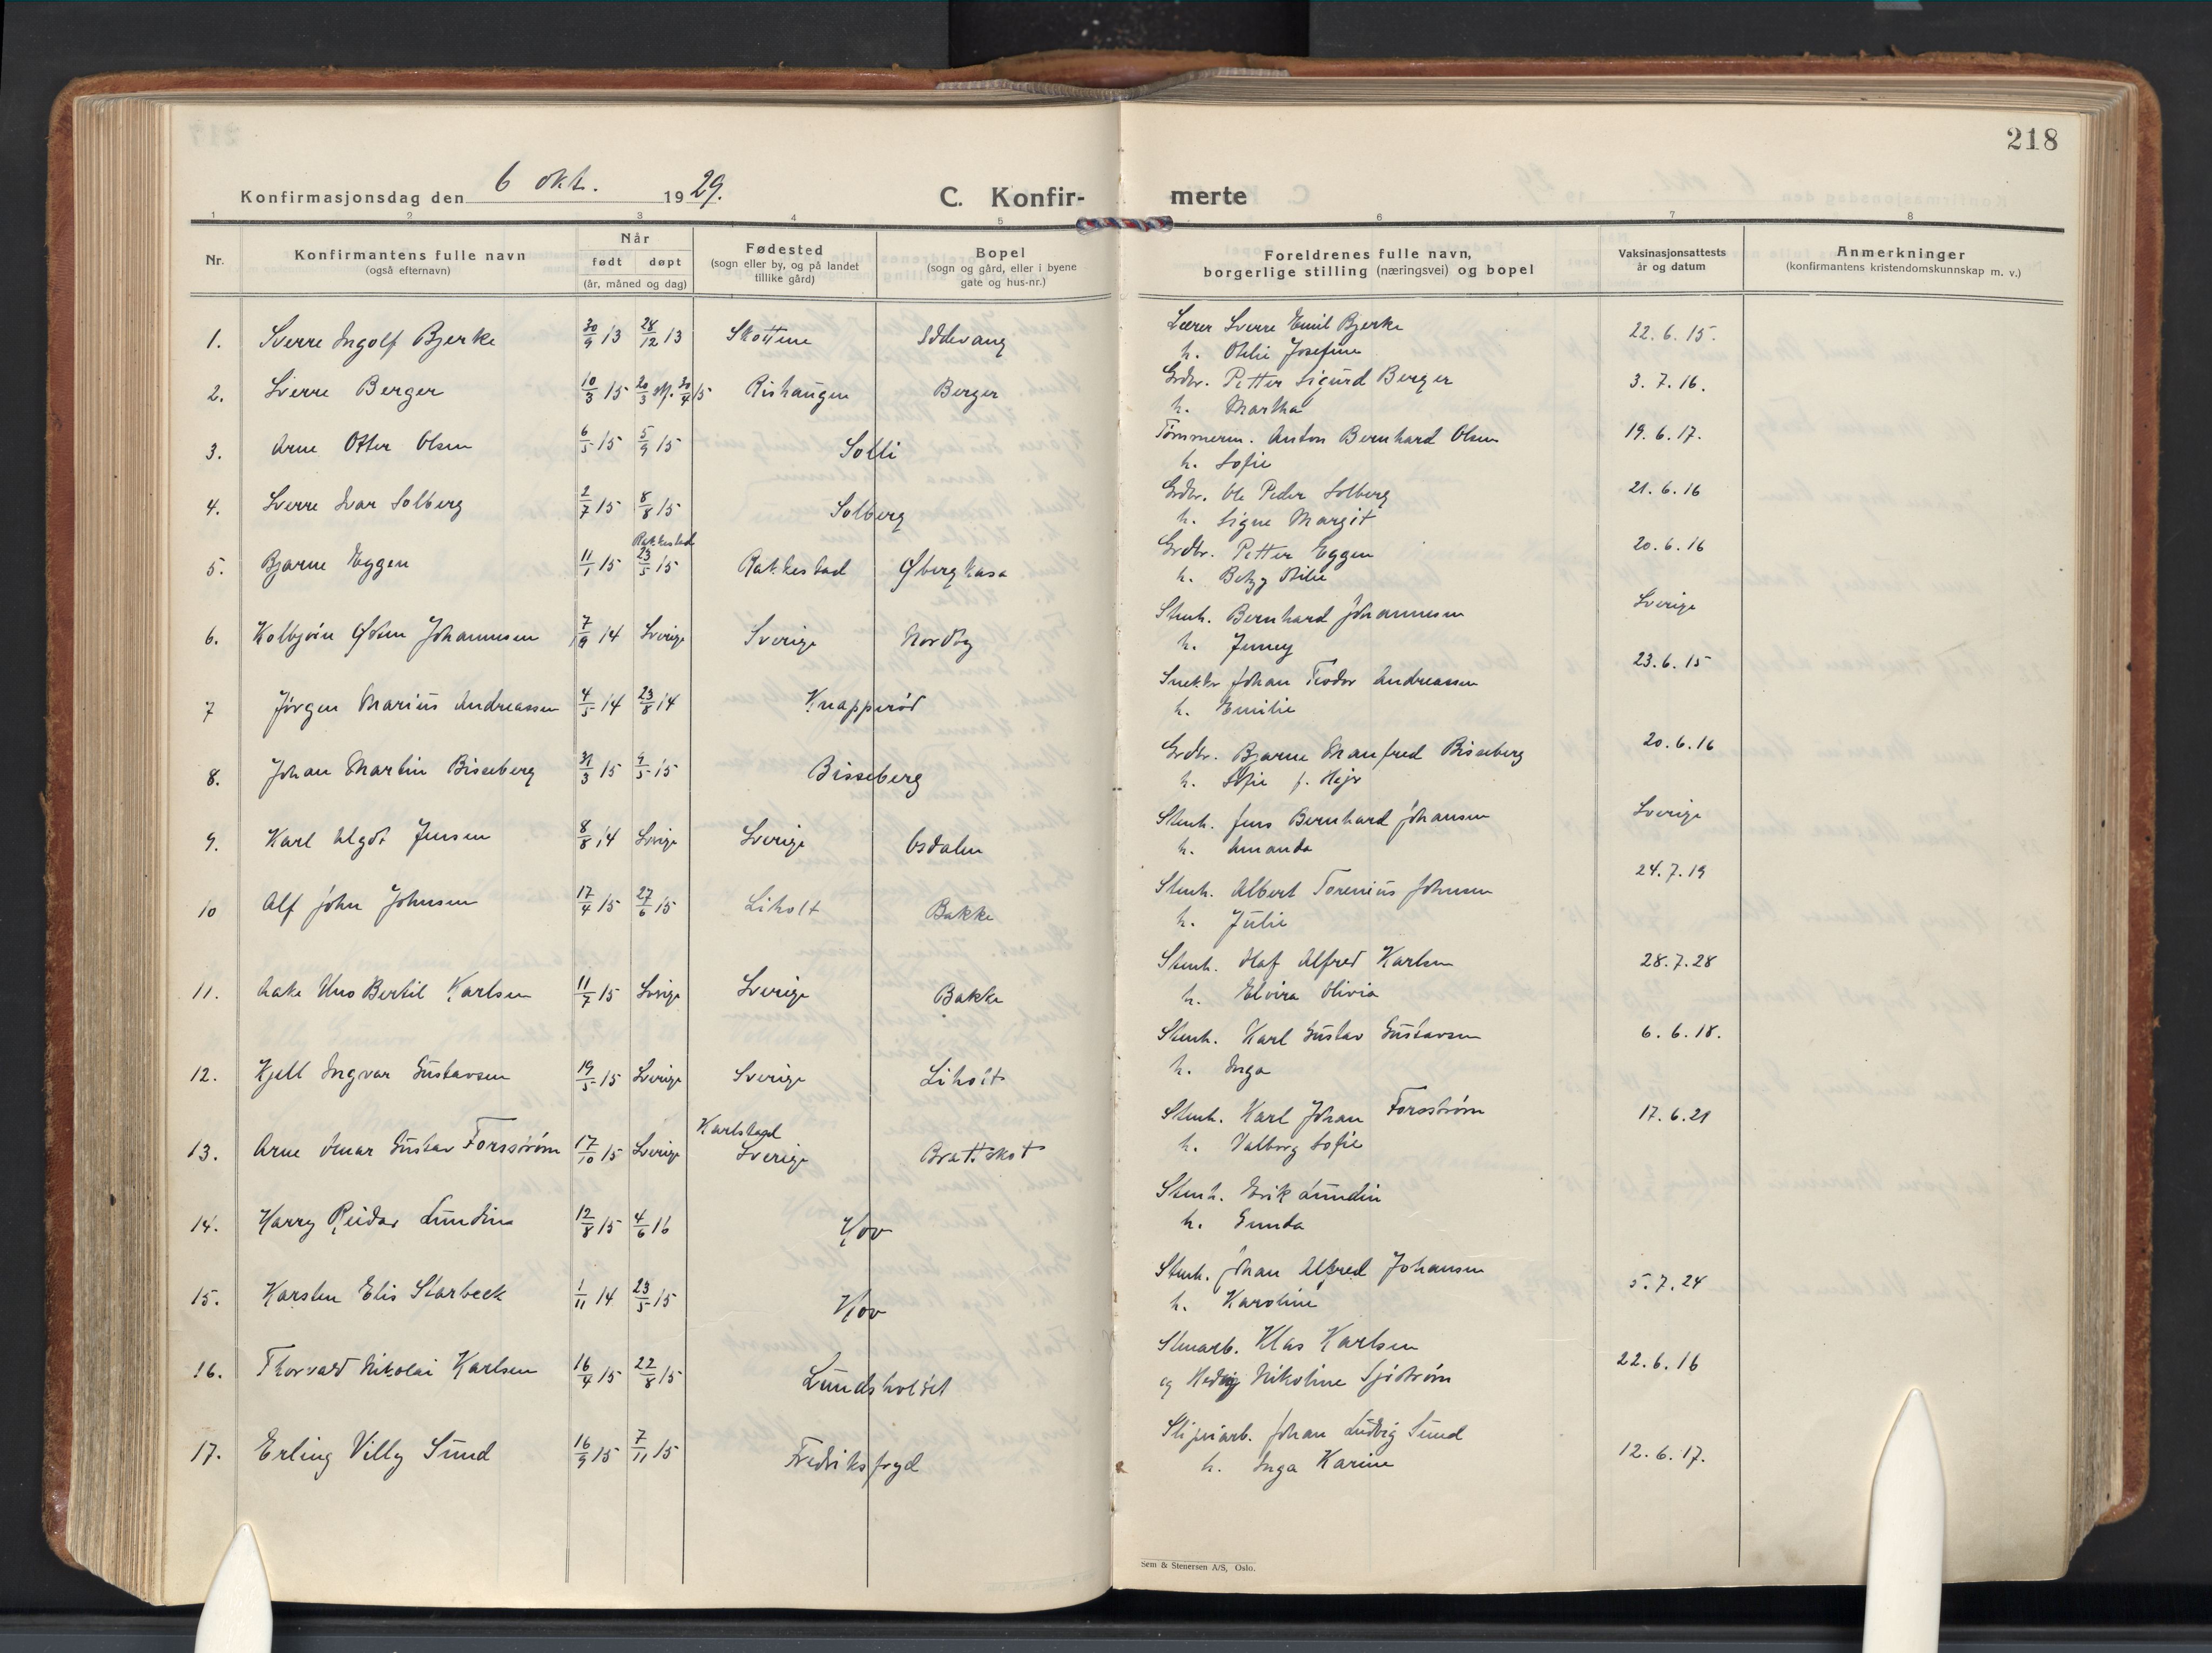 218
Konfirmasjonsdag den 6 okt. 1929.
C. Konfir-
merte
1 2 3 4 5 6 7 8
Nr.
Konfirmantens fulle navn
(også efternavn)
Når
født døpt
(år, måned og dag)
Fødested
(sogn eller by, og på landet
tillike gård)
Bopel
(sogn og gård, eller i byene
gate og hus-nr.)
Foreldrenes fulle navn,
borgerlige stilling (næringsvei) og bopel
Vaksinasjonsattests
år og datum
Anmerkninger
(konfirmantens kristendomskunnskap m. v.)
1. Sverre Ingolf Bjerke 30/9 13 28/12 13 Skottene Sdevang Lærer Sverre Emil Bjerke 22.6.15.
h. Otilie Josefine
2. Sverre Berger 10/3 15 20/3 30/4 15 Rishaugen Berger Grdbr. Petter Sigurd Berger 3.7.16.
h. Martha
3. Arne Otter Olsen 6/5 15 5/9 15 Solli Tømmerm. Anton Bernhard Olsen 19.6.17.
h. Sofie
4. Sverre Ivar Solberg 2/7 15 8/8 15 Solberg Grdbr. Ole Peder Solberg 21.6.16
h. Signe Margit
Rakkestad
5. Bjarne Eggen 11/1 15 23/5 15 Rakkestad Øberg kasa Grdbr. Petter Eggen 20.6.16
h. Betzy Otilie
6. Kolbjørn Østen Johannesen 7/9 14 Sverige Sverige Nordby Stenh. Bernhard Johannesen Sverige
h. Jenny
7 Jörgen Marius Andreassen 4/5 14 23/8 14 Knapperöd Snekker Johan Teodor Andreassen 23.6.15
h. Emilie
8. Johan Martin Bisseberg 31/3 15 9/5 15 Bisseberg Grdbr. Bjarne Manfred Bisseberg 20.6.16
h. Sofie f. Heje
9. Karl Algot Jensen 8/8 14 Sverige Sverige Osdalen Stenh. Jens Bernhard Johansen Sverige
h. Amanda
10 Alf John Johnsen 17/4 15 27/6 15 Liholt Bakke Stenh. Albert Torenius Johnsen 24.7.19
h. Julie
11. Aake Uno Bertil Karlsen 11/7 15 Sverige Sverige Bakke Stenh. Olaf Alfred Karlsen 28.7.28
h. Elvira Olivia
12. Kjell Ingvar Gustavsen 19/5 15 Sverige Sverige Liholt Stenh. Karl Gustav Gustavsen 6.6.18.
h. Inga
Karlstad
13. Arne Einar Gustav Forsström 17/10 15 Sverige Sverige Brattskot Stenh. Karl Johan Forsström 17.6.21
h. Valborg Sofie
14. Harry Reidar Lundin 12/8 15 4/6 16 Hov Stenh. Erik Lundin
h. Gunda
15. Karsten Elis Starbeck 1/11 14 23/5 15 Hov Stenh. Johan Alfred Johansen 5.7.24
h. Karoline
16. Thorvald Nikolai Karlsen 16/4 15 22/8 15 Lundsholdet Stenarb. Klas Karlsen 22.6.16
og Hedvig Nikoline Sjöström
17. Erling Villy Sund 16/9 15 7/11 15 Fredriksfryd Sliperiarb. Johan Ludvig Sund 12.6.17.
h. Inga Karine
Sem & Stenersen A/S, Oslo.